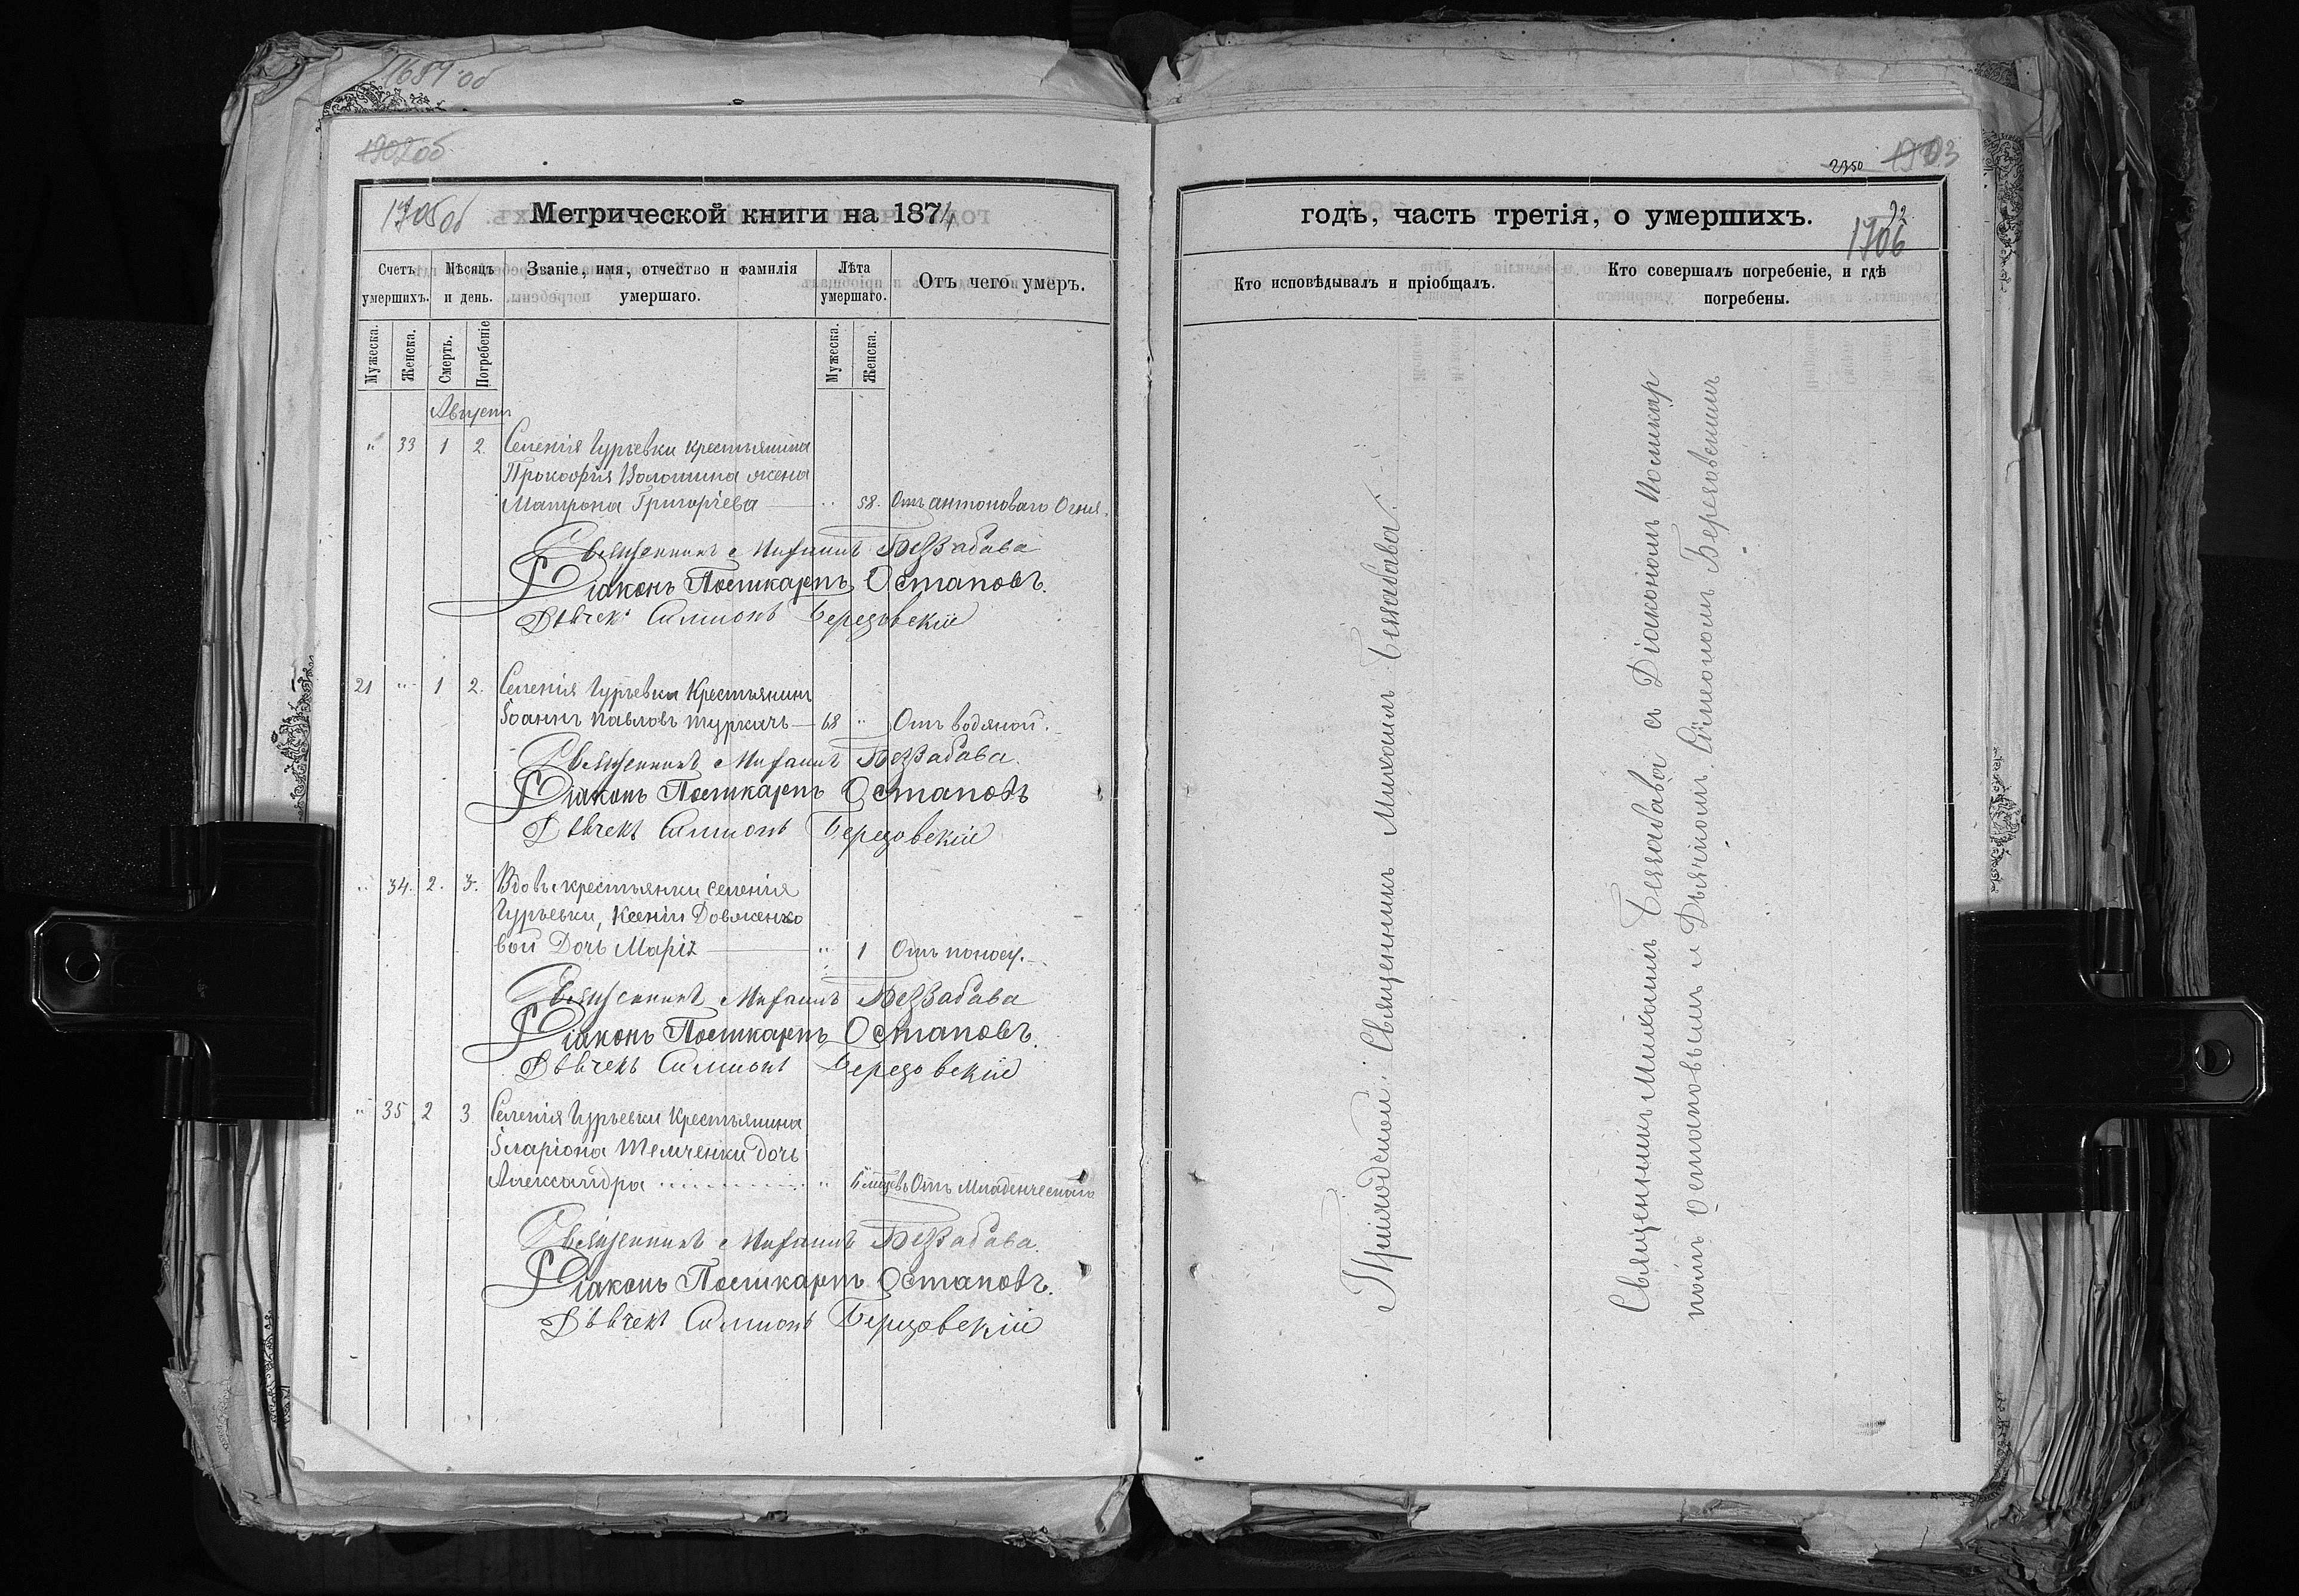 1689 об
1902 об
1705 об
Метрической книги на 1874
Счетъ умершихъ.
Мѣсяцъ и день.
Званіе, имя, отчество и фамилія умершаго.
Лѣта умершаго.
Отъ чего умеръ.
Мужеска.
Женска.
Смерть.
Погребеніе
Мужеска.
Женска.
Августъ
" 33 1 2. Селенія Гурьевки крестьянина
Прокофія Волошина жена
Матрона Григорьева " 58. Отъ антоноваго Огня.
Священникъ Михаилъ Беззабава
Діаконъ Поликарпъ Остаповъ.
Дьячекъ Симионъ Березовскій
21 " 1 2. Селенія Гурьевки Крестьянинъ
Іоаннъ Павловъ Туркачъ 68 " Отъ водяной.
Священникъ Михаилъ Беззабава.
Діаконъ Поликарпъ Остаповъ
Дьячекъ Симионъ Березовскій
" 34. 2. 3. Вдовы крестьянки селенія
Гурьевки, Ксеніи Довженко
вой Дочь Марія " 1 Отъ поносу.
Священникъ Михаилъ Беззабава
Діаконъ Поликарпъ Остаповъ.
Дьячекъ Симионъ Березовскій
" 35 2 3 Селенія Гурьевки Крестьянина
Иларіона Теличенки дочь
Александра " 6 мѣсцевъ Отъ Младенческаго
Священникъ Михаилъ Беззабава.
Діаконъ Поликарпъ Остаповъ.
Дьячекъ Симионъ Березовскій
2350 1903
годъ, часть третія, о умершихъ.
92
1706
Кто исповѣдывалъ и пріобщалъ.
Кто совершалъ погребеніе, и гдѣ погребены.
Приходской Священникъ Михаилъ Беззабава.
Священникъ Михаилъ Беззабава съ Діакономъ Поликар
помъ Остаповымъ и Дьячкомъ Симеономъ Березовскимъ